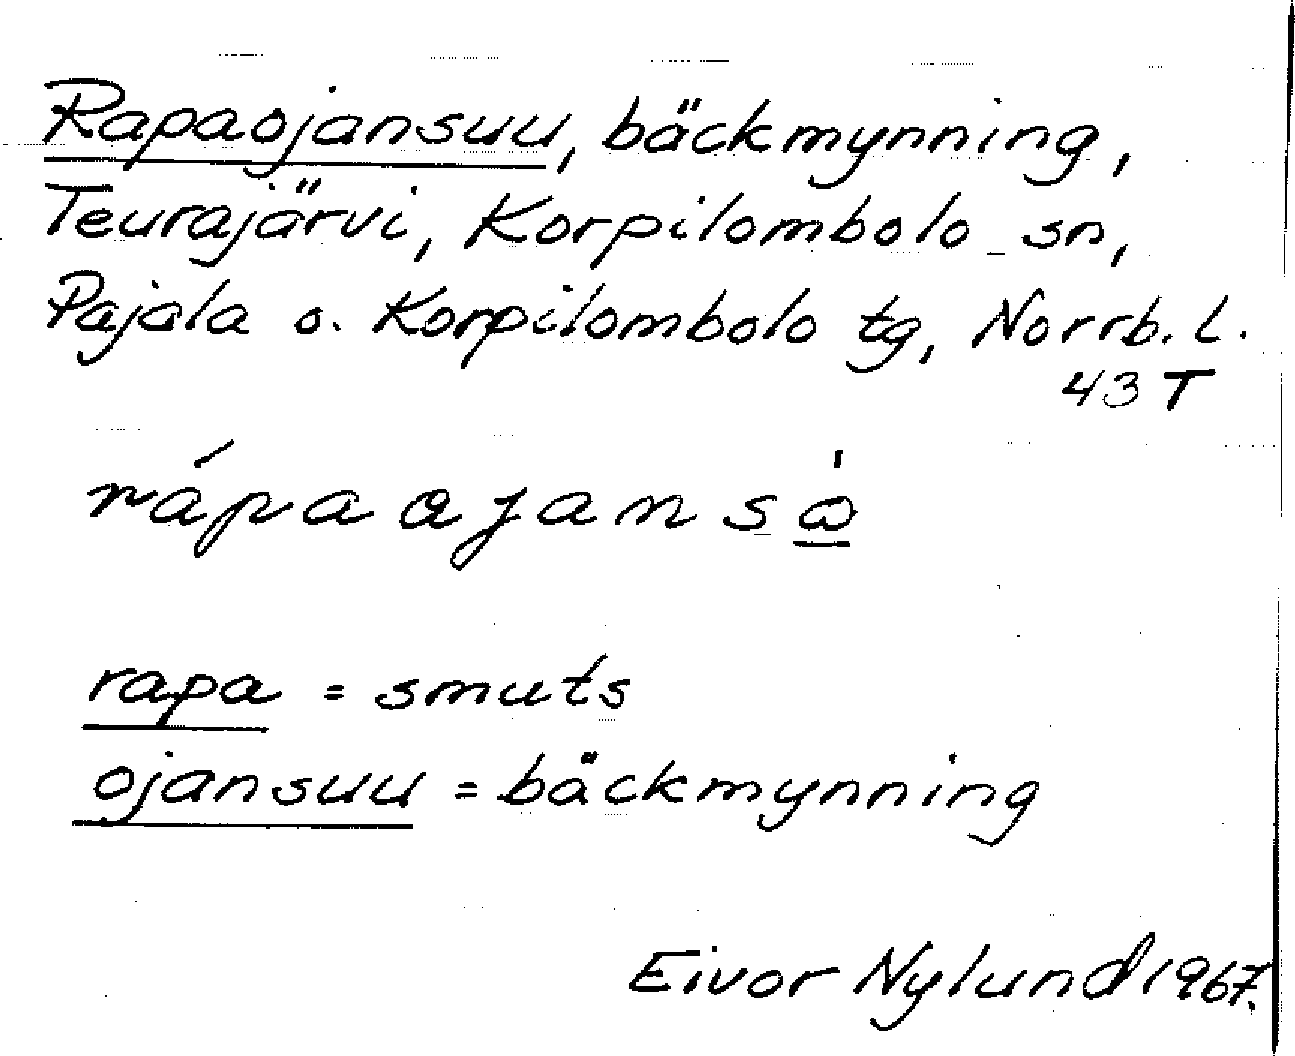 Rapaojansuu, bäckmynning,
Teurajärvi, Korpilombolo sn,
Pajala o. Korpilombolo tg, Norrb. L.
43 T
rapa = smuts
ojansuu = bäckmynning
Eivor Nylund 1967.